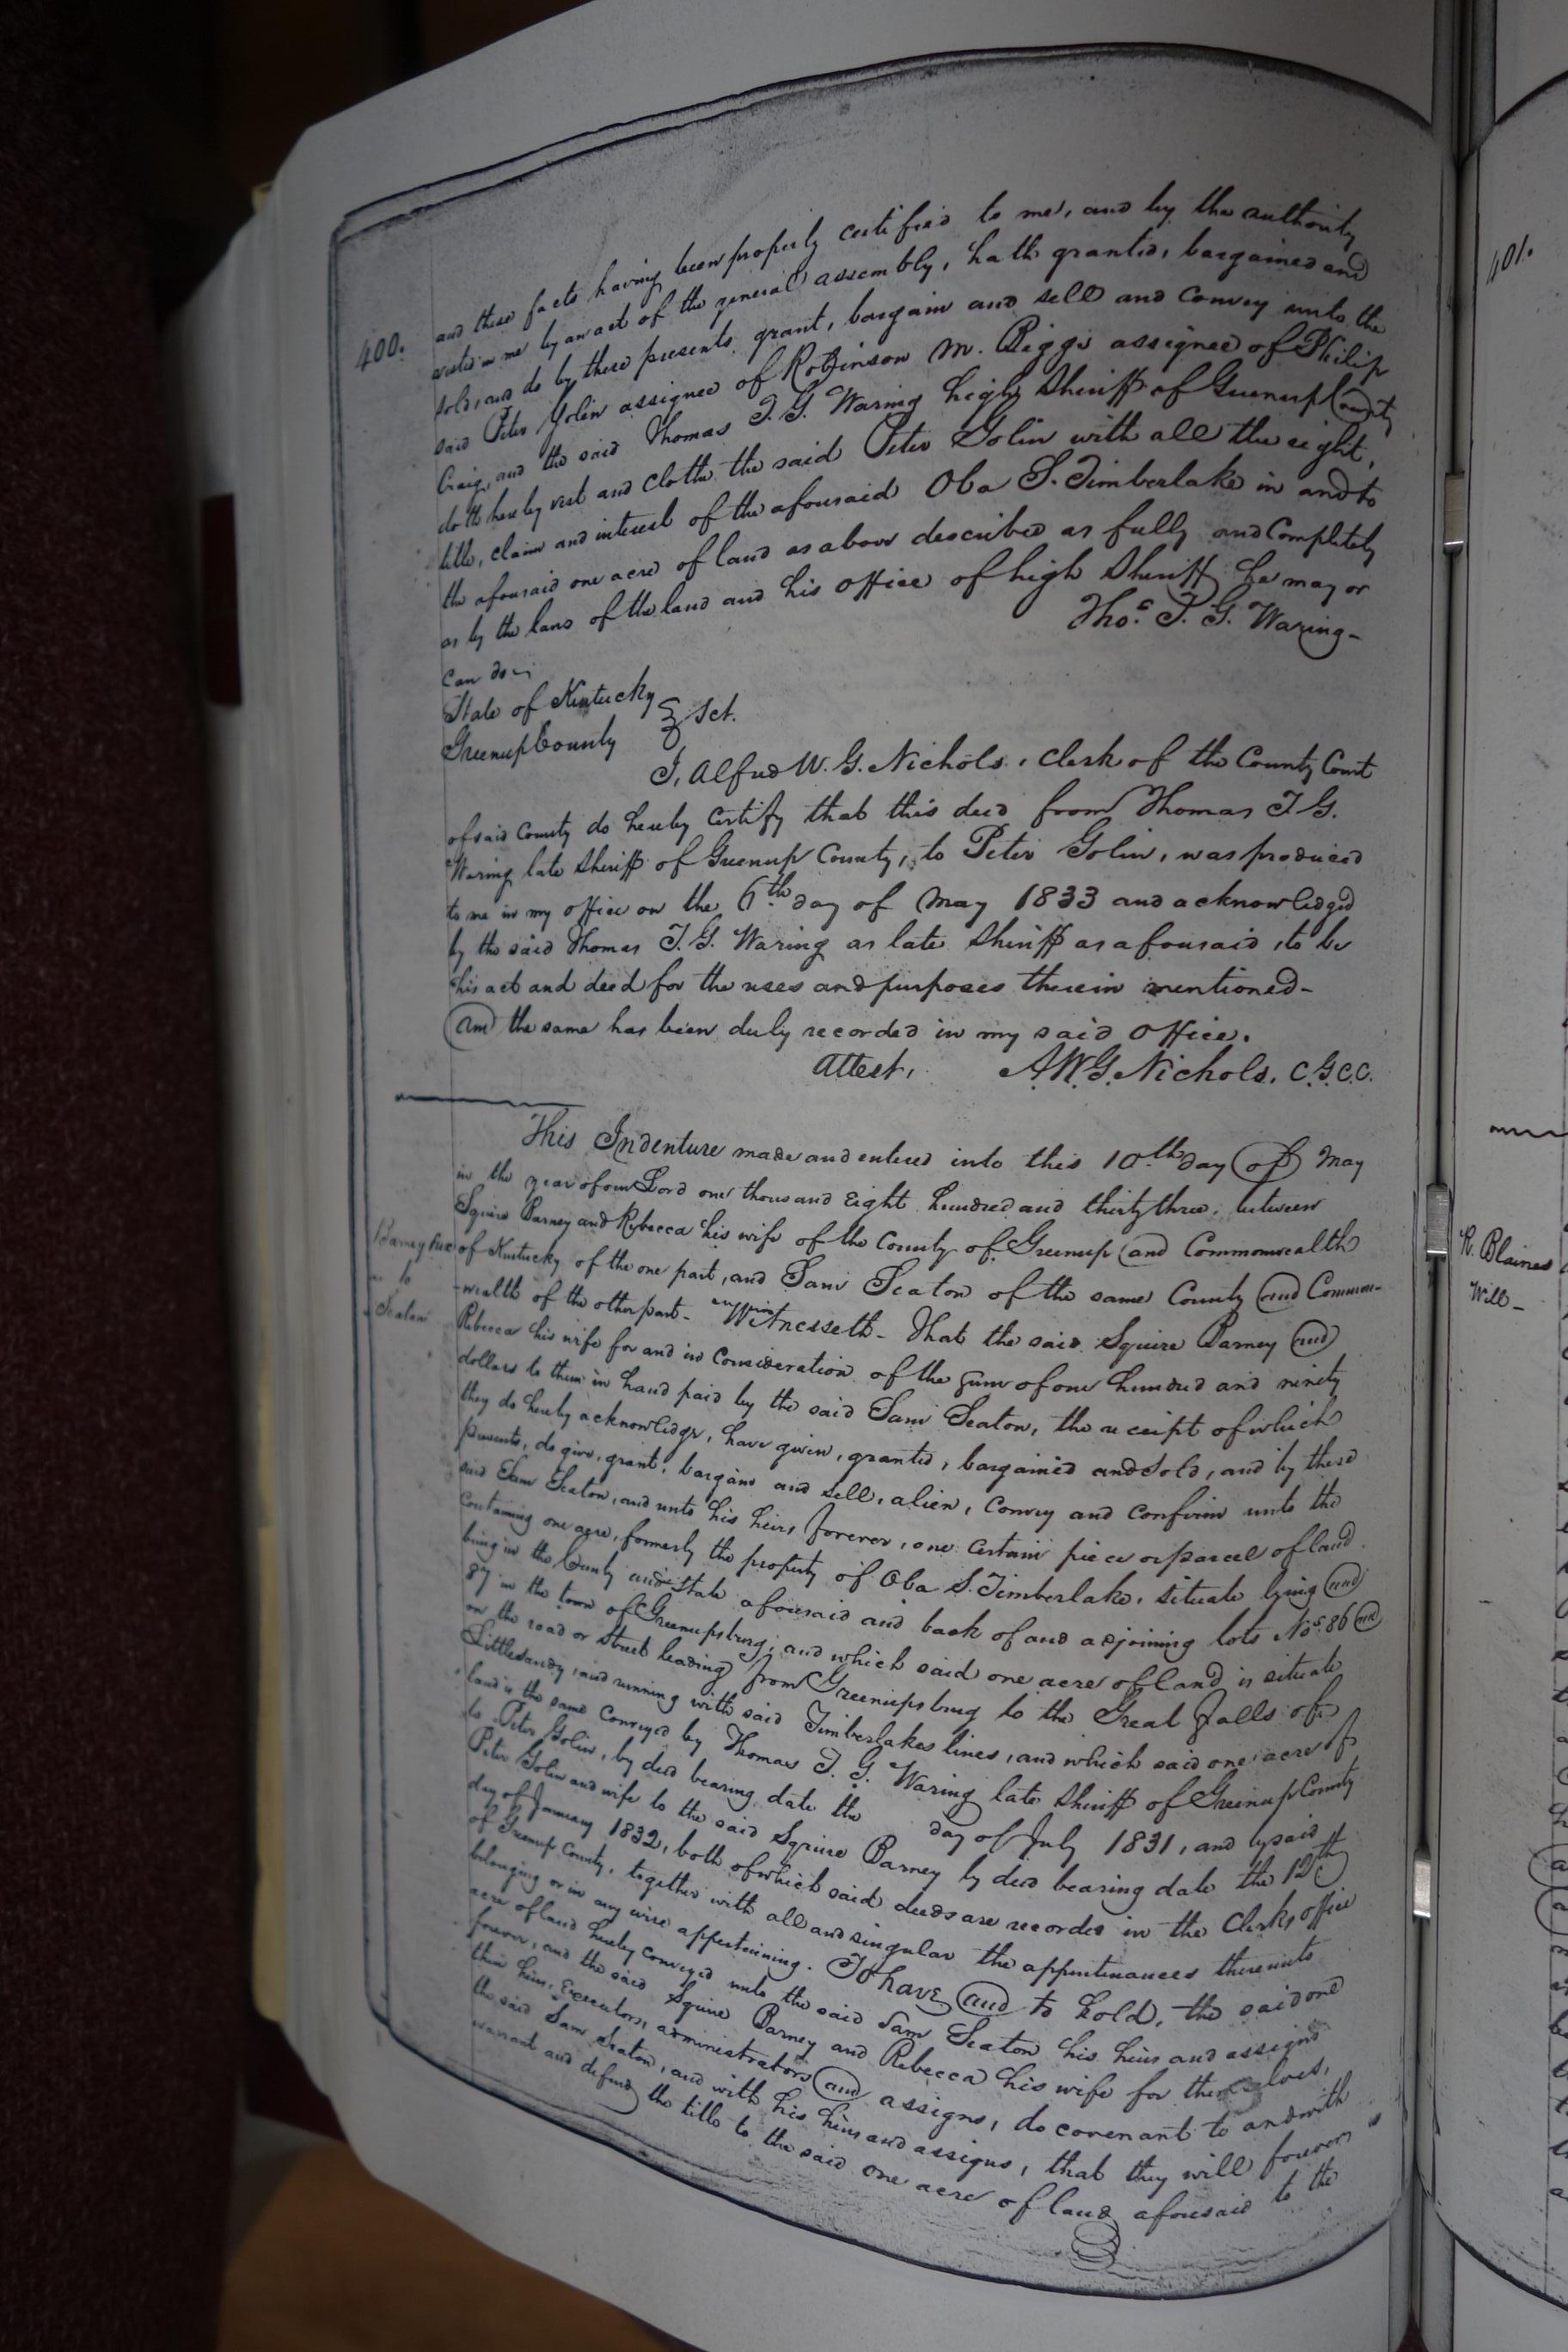 400.
and these facts having been properly certified to me, and by the authority
vested in me by an act of the general assembly, hath granted, bargained and
sold, and do by these presents, grant, bargain and sell and convey unto the
said Peter Golin assignee of Robinson M. Biggs assignee of Philip
Craig, and the said Thomas T. G. Waring high Sheriff of Greenup County
doth hereby vest and clothe the said Peter Golin with all the right,
title, claim and interest of the aforesaid Oba S. Timberlake in and to
the aforesaid one acre of land as above described as fully and completely
as by the laws of the land and his office of high Sheriff he may or
can do.
Thos. T. G. Waring-
State of Kentucky
Greenup County } Sct.
I, Alfred W. G. Nichols, Clerk of the County Court
of said County do hereby certify that this deed from Thomas T G.
Waring late Sheriff of Greenup County, to Peter Golin, was produced
to me in my office on the 6th day of May 1833 and acknowledged
by the said Thomas T. G. Waring as late Sheriff as aforesaid, to be
his act and deed for the uses and purposes therein mentioned-
and the same has been duly recorded in my said Office.
Attest, A.W.G. Nichols, C.G.C.C.
This Indenture made and entered into this 10th day of May
in the year of our Lord one thousand Eight hundred and thirty three, between
Squire Barney and Rebecca his wife of the County of Greenup and Commonwealth
Barney &ux
to
Seaton
of Kentucky of the one part, and Sam Seaton of the same County and Common-
-wealth of the other part- Witnesseth- That the said Squire Barney and
Rebecca his wife for and in Consideration of the sum of one hundred and ninety
dollars to them in hand paid by the said Sam Seaton, the receipt of which
they do hereby acknowledge, have given, granted, bargained and sold, and by these
presents, do give, grant, bargain and sell, alien, convey and confirm unto the
said Sam Seaton, and unto his heirs forever, one certain piece or parcel of land
containing one acre, formerly the property of Oba S. Timberlake, situate lying and
being in the County and State aforesaid and back of and adjoining lots Nos. 86 and
87 in the town of Greenupsburg, and which said one acre of land is situate
on the road or Street leading from Greenupsburg to the Great Falls of
Little Sandy, and running with said Timberlakes lines, and which said one acre of
land is the same conveyed by Thomas T. G. Waring late Sheriff of Greenup County
to Peter Golin, by deed bearing date the day of July 1831, and by said
Peter Golin and wife to the said Squire Barney by deed bearing date the 12th
day of January 1832, both of which said deeds are recorded in the Clerks office
of Greenup County, together with all and singular the appurtenances thereunto
belonging or in any wise appertaining. To have and to hold, the said one
acre of land hereby conveyed unto the said Sam Seaton his heirs and assigns
forever, and the said Squire Barney and Rebecca his wife for themselves,
their heirs, Executors, administrators and assigns, do covenant to and with
the said Sam Seaton, and with his heirs and assigns, that they will forever
warrant and defend the title to the said one acre of land aforesaid to the
401.
R. Blaines
Will-